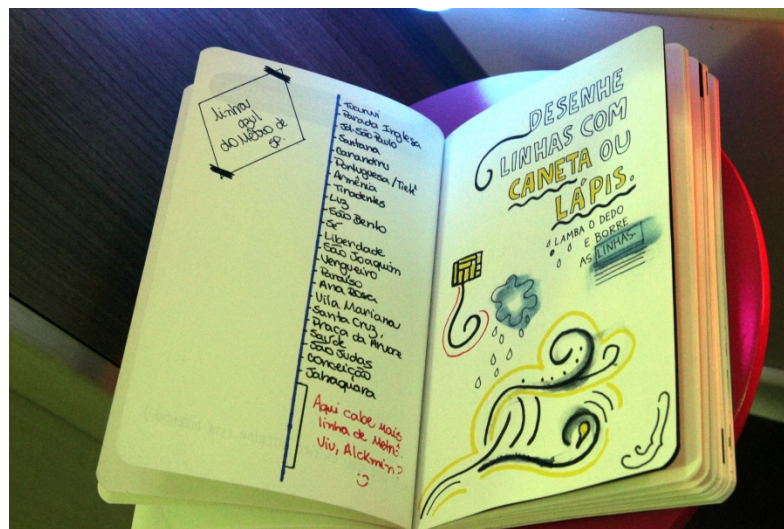 linha
azul
do Metrô de
SP.
Tucuruvi
Parada Inglesa
Jd. São Paulo
Santana
Carandiru
Portuguesa/Tietê
Armênia
Tiradentes
Luz
São Bento
Sé
Liberdade
São Joaquim
Vergueiro
Paraíso
Ana Rosa
Vila Mariana
Santa Cruz
Praça da Árvore
Saúde
São Judas
Conceição
Jabaquara
Aqui cabe mais
linha de Metrô.
Viu, Alckmin?
DESENHE
LINHAS COM
CANETA OU
LÁPIS.
LAMBA O DEDO
E BORRE
AS LINHAS.